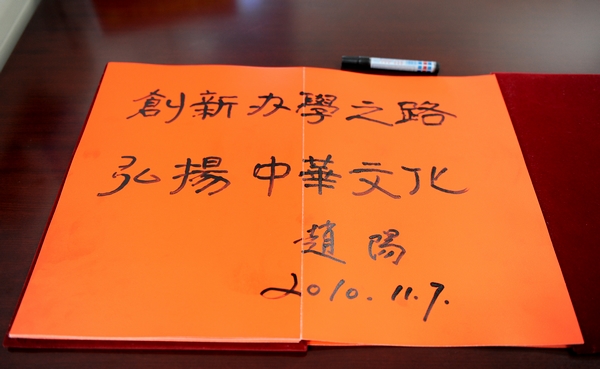 創新办學之路
弘揚中華文化
趙陽
2010.11.7.